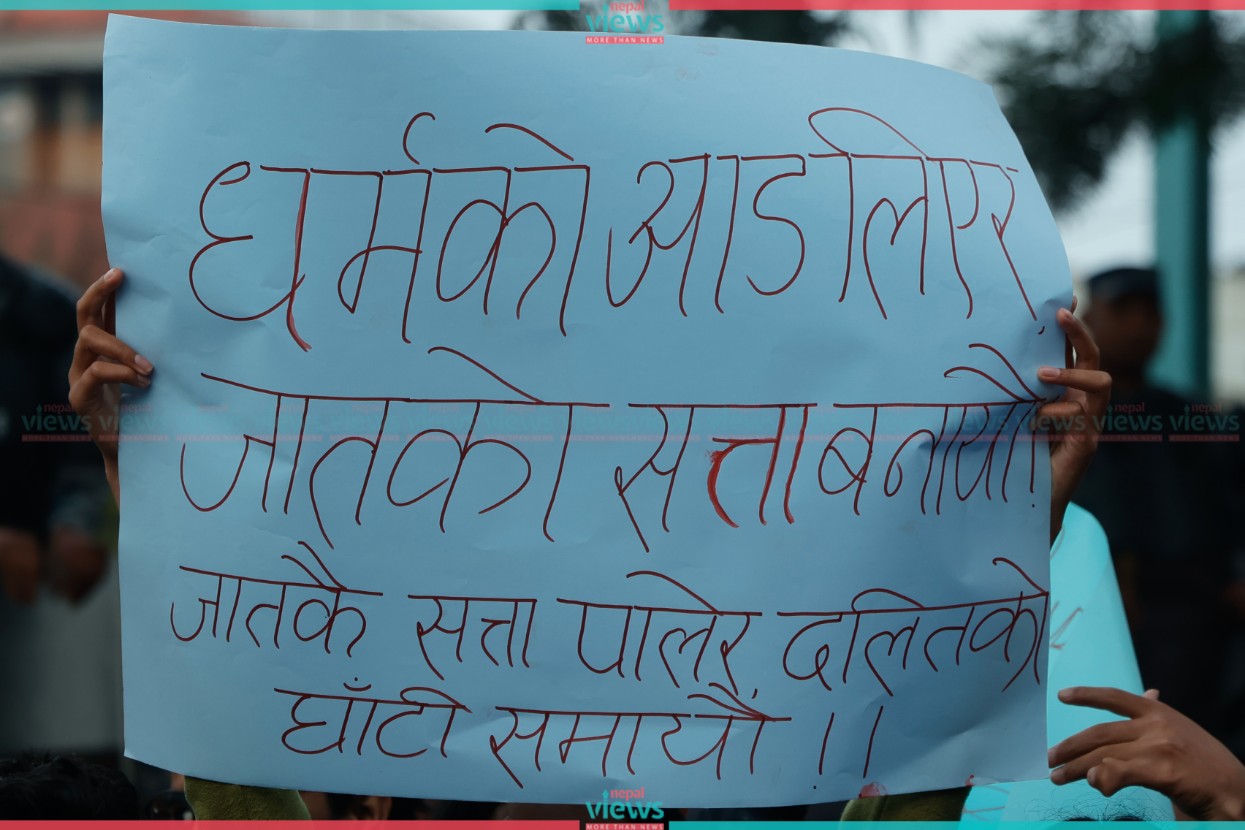 nepal
views
MORE THAN NEWS
धर्मको आड लिएर,
जातको सत्ता बनायौ!
nepal views nepal views nepal views nepal views nepal views
जातकै सत्ता पालेर, दलितको
घाँटी समायौ ।।
nepal
views
MORE THAN NEWS